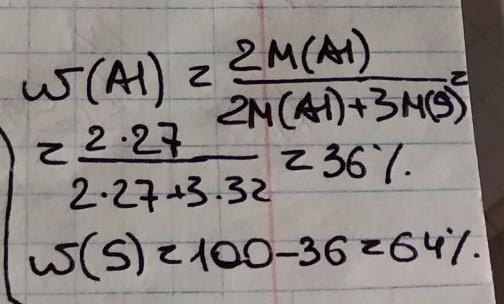 w(Al) = 2M(Al) / 2M(Al)+3M(S) =
= 2·27 / 2·27+3·32 = 36%.
w(S) = 100-36 = 64%.